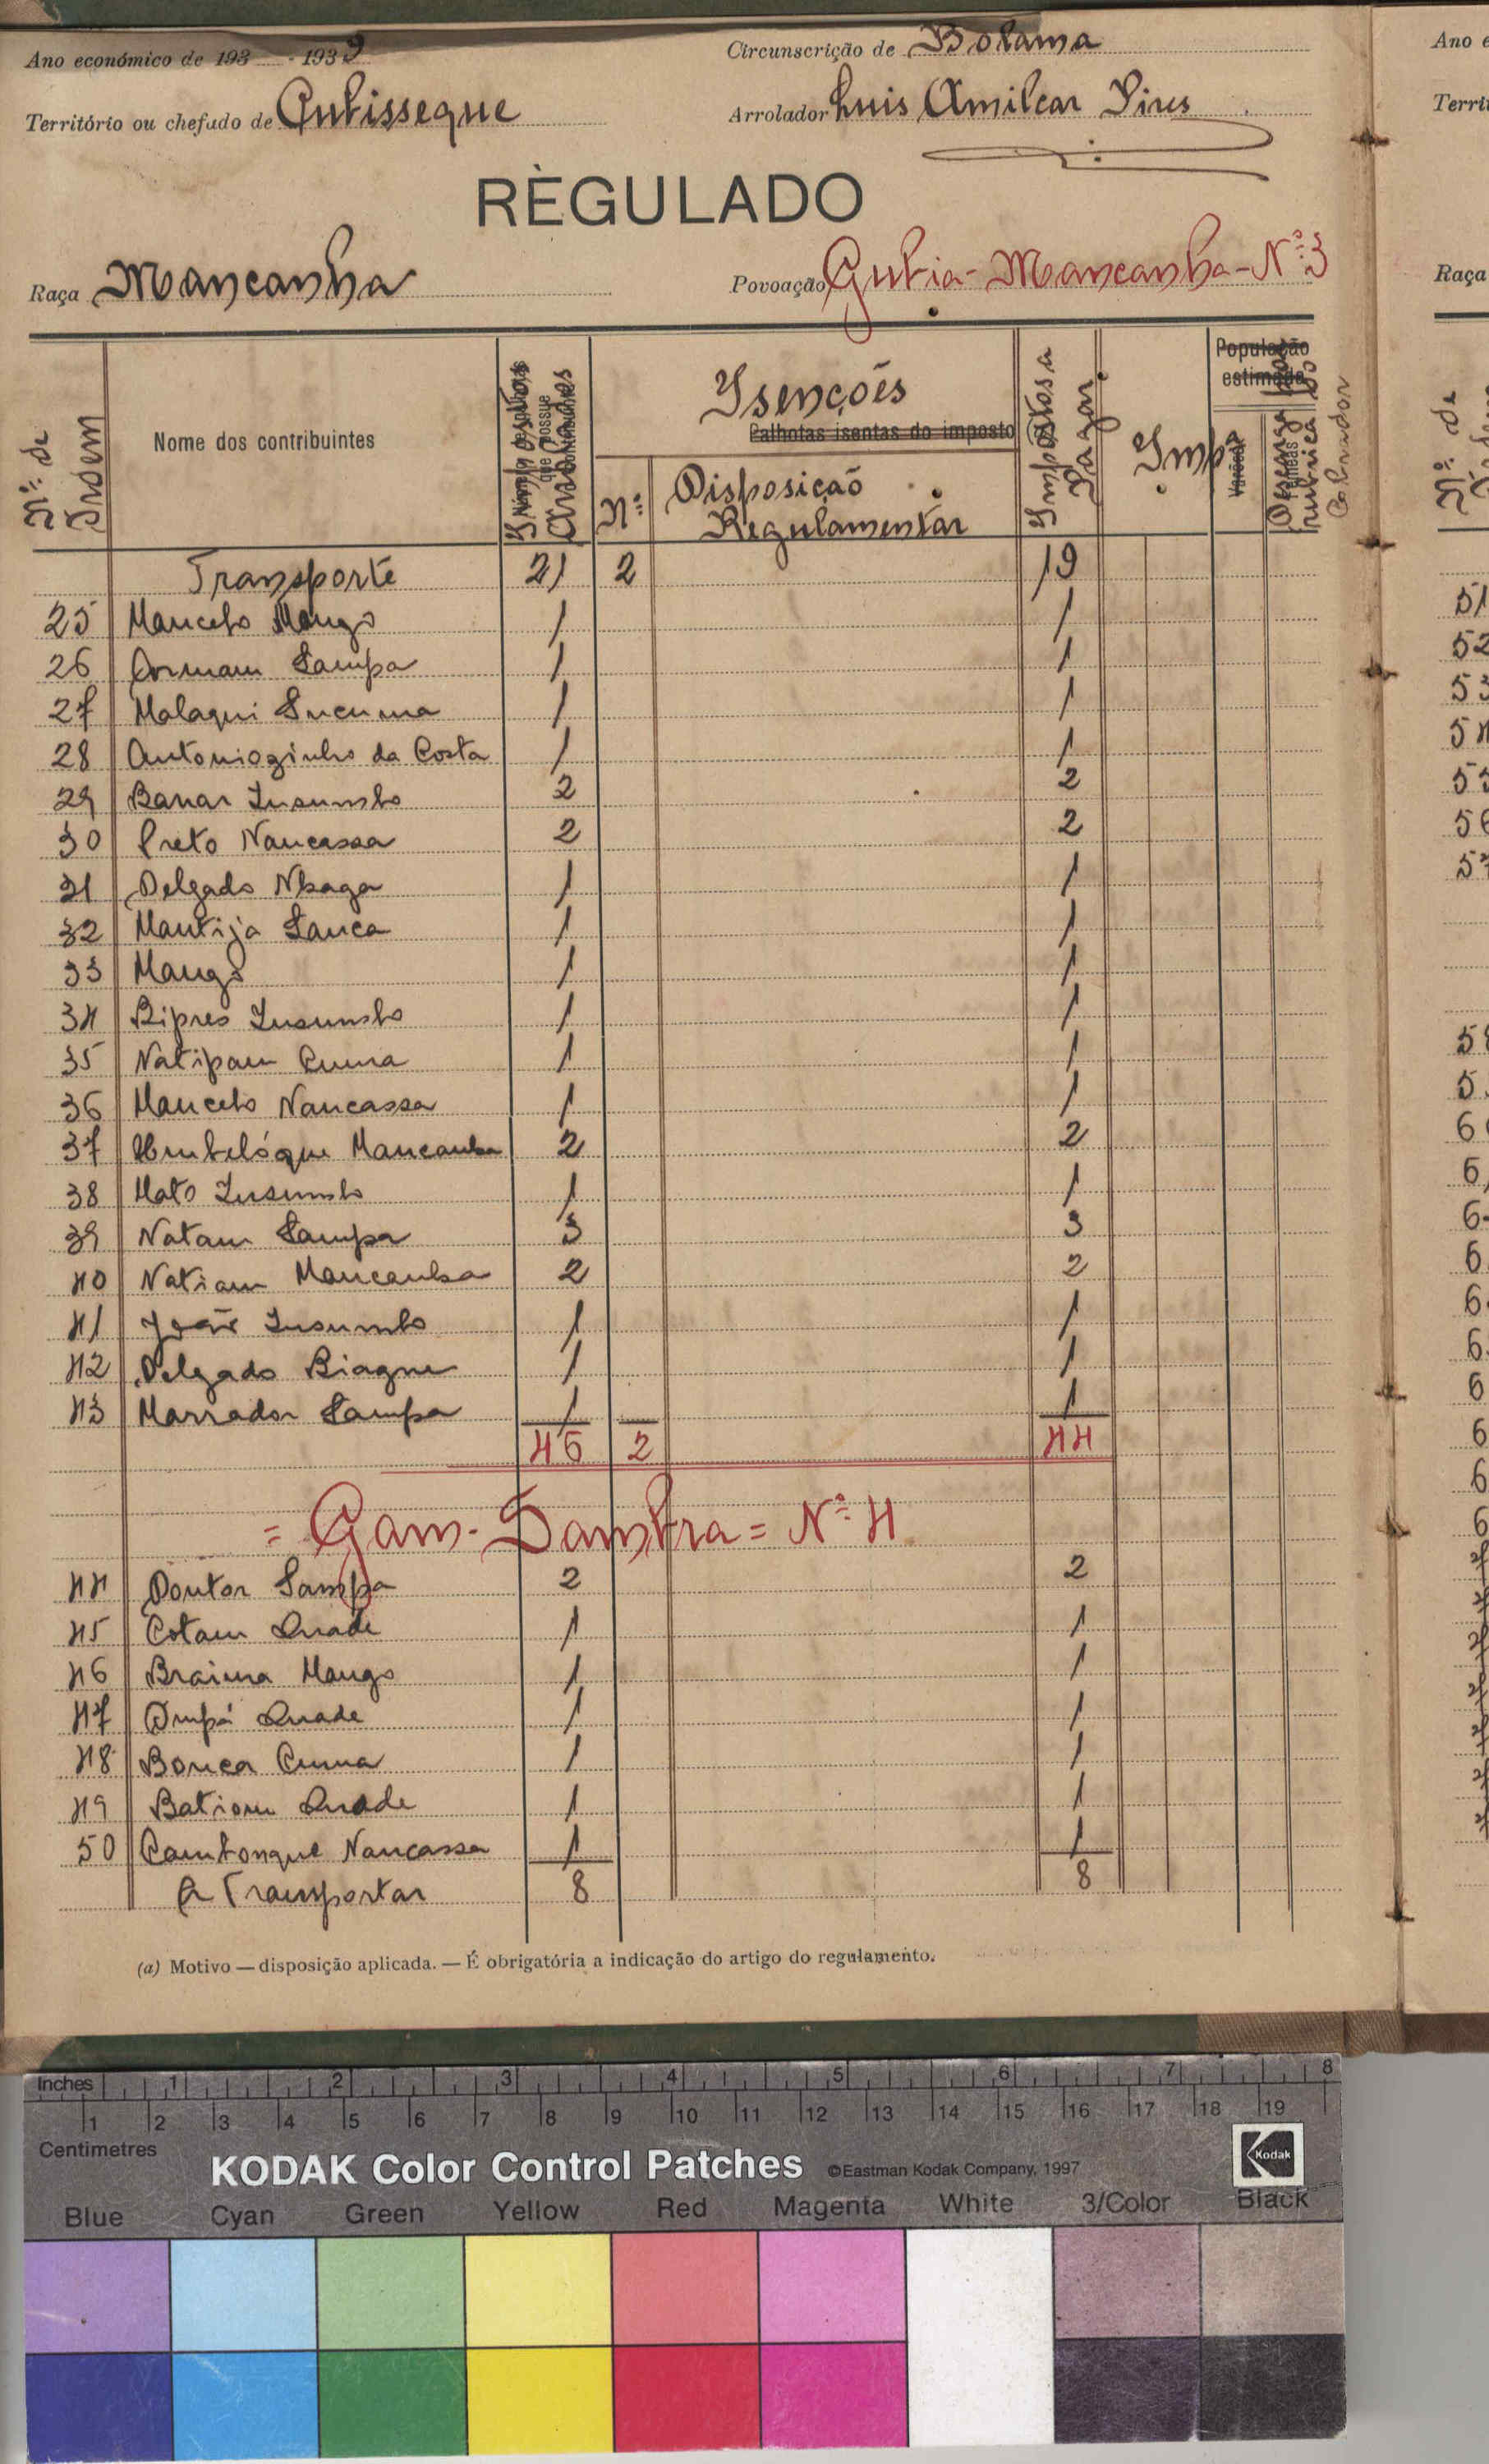 Ano económico de 193 - 1939
Circunscrição de Bolama
Território ou chefado de Cubisseque
Arrolador Luis Amilcar Pires
RÈGULADO
Raça Mancanha
Povoação Gubia-Mancanha-Nº:3
Nº: de Ordem
Nome dos contribuintes
Isenções
Palhotas isentas do imposto
Nº:
Disposição Regulamentar
Impostos a Pagar
População estimada
Transporte 21 2 19
25 Mancebo Mango 1 1
26 Armam Sampa 1 1
27 Malaqui Sucuma 1 1
28 Antoniozinho da Costa 1 1
29 Banar Insumbo 2 2
30 Preto Nancassa 2 2
31 Delgado Nhaga 1 1
32 Mantija Sanca 1 1
33 Mango 1 1
34 Bipres Insumbo 1 1
35 Natipam Cuma 1 1
36 Mancebo Nancassa 1 1
37 Mancanha 2 2
38 Mato Insumbo 1 1
39 Natam Sampa 3 3
40 Natiam Mancanha 2 2
41 João Insumbo 1 1
42 Delgado Biague 1 1
43 Marrador Sampa 1 1
46 2 44
= Gam-Sambra = Nº: 4
44 Doutor Sampa 2 2
45 Cotam Quade 1 1
46 Braima Mango 1 1
47 Quade 1 1
48 Bouca Cuma 1 1
49 Batiam Quade 1 1
50 Cambonque Nancassa 1 1
A Transportar 8 8
(a) Motivo — disposição aplicada. — É obrigatória a indicação do artigo do regulamento.
Ano e
Territ
Raça
Nº: de
51
52
53
54
55
56
57
Inches 1 2 3 4 5 6 7 8
1 2 3 4 5 6 7 8 9 10 11 12 13 14 15 16 17 18 19
Centimetres
KODAK Color Control Patches ©Eastman Kodak Company, 1997 Kodak
Blue Cyan Green Yellow Red Magenta White 3/Color Black